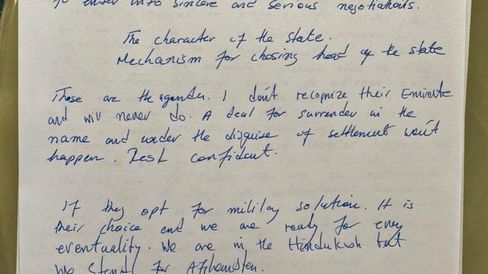 To enter into sincere and serious negotiations.
The character of the state.
Mechanism for chosing head of the state
Those are the agenda. I don't recognize their Emirate
and will never do. A deal for surrender in the
name and under the disguise of settlement won't
happen. Rest confident.
If they opt for military solution. It is
their choice and we are ready for every
eventuality. We are in the Hindukush but
We stand for Afghanistan.